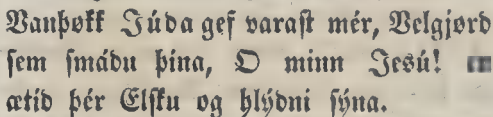 Vanþøkk Júda gef varast mér, Velgjørð
sem smádu þina, O minn Jesú!
ætið þér Elsku og hlýðni sýna.